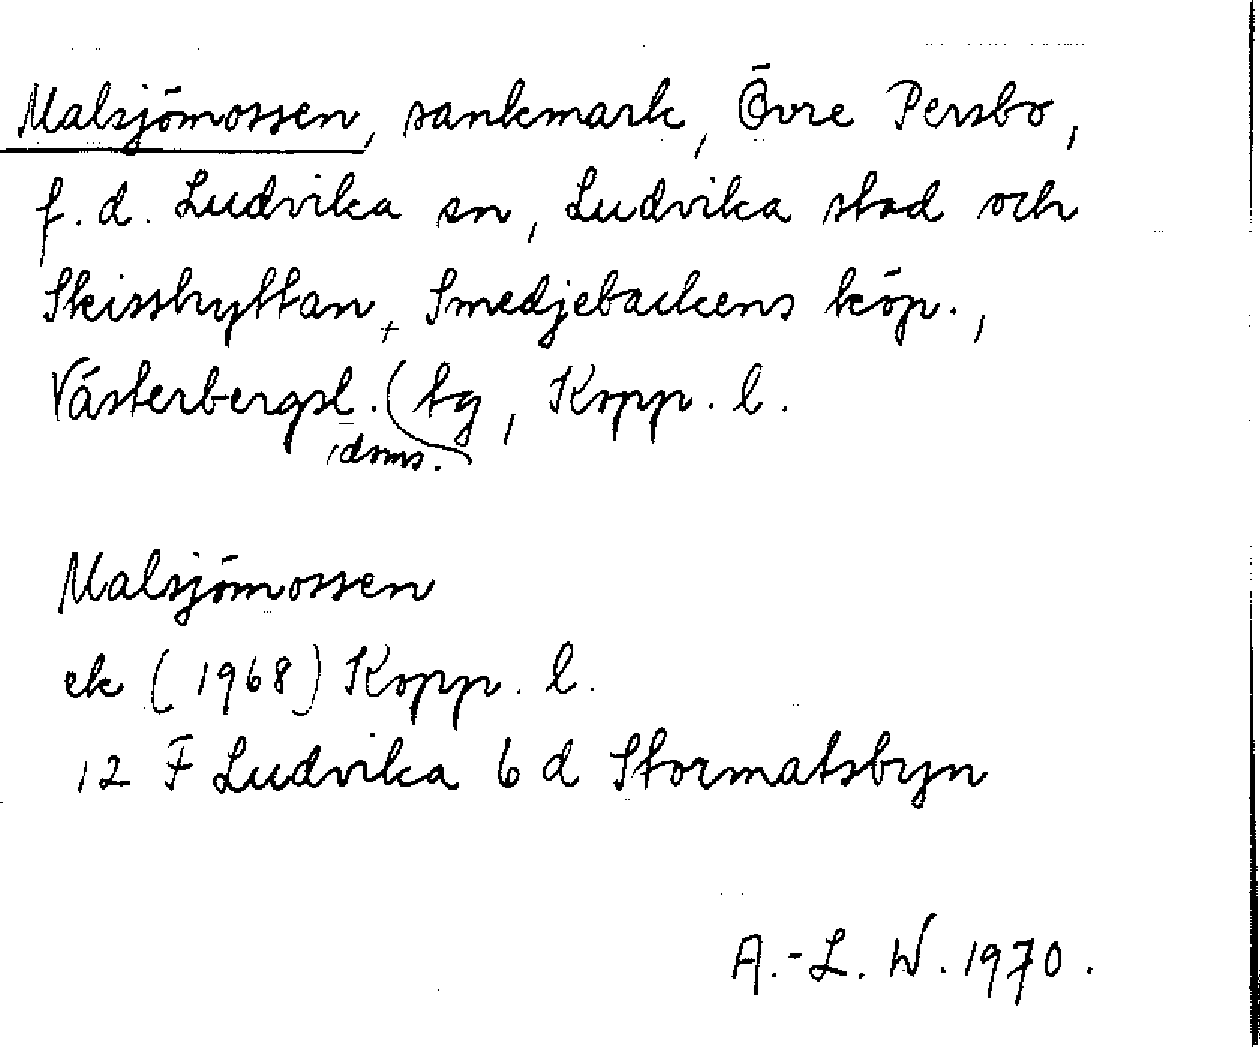 Malsjömossen, sankmark, Övre Persbo,
f.d. Ludvika sn, Ludvika stad och
Skisshyttan, Smedjebackens köp.,
Västerbergsl. (tg, Kopp. l.
doms.
Malsjömossen
ek (1968) Kopp. l.
12 F Ludvika 6 d Stormatsbyn
A.-L. W. 1970.